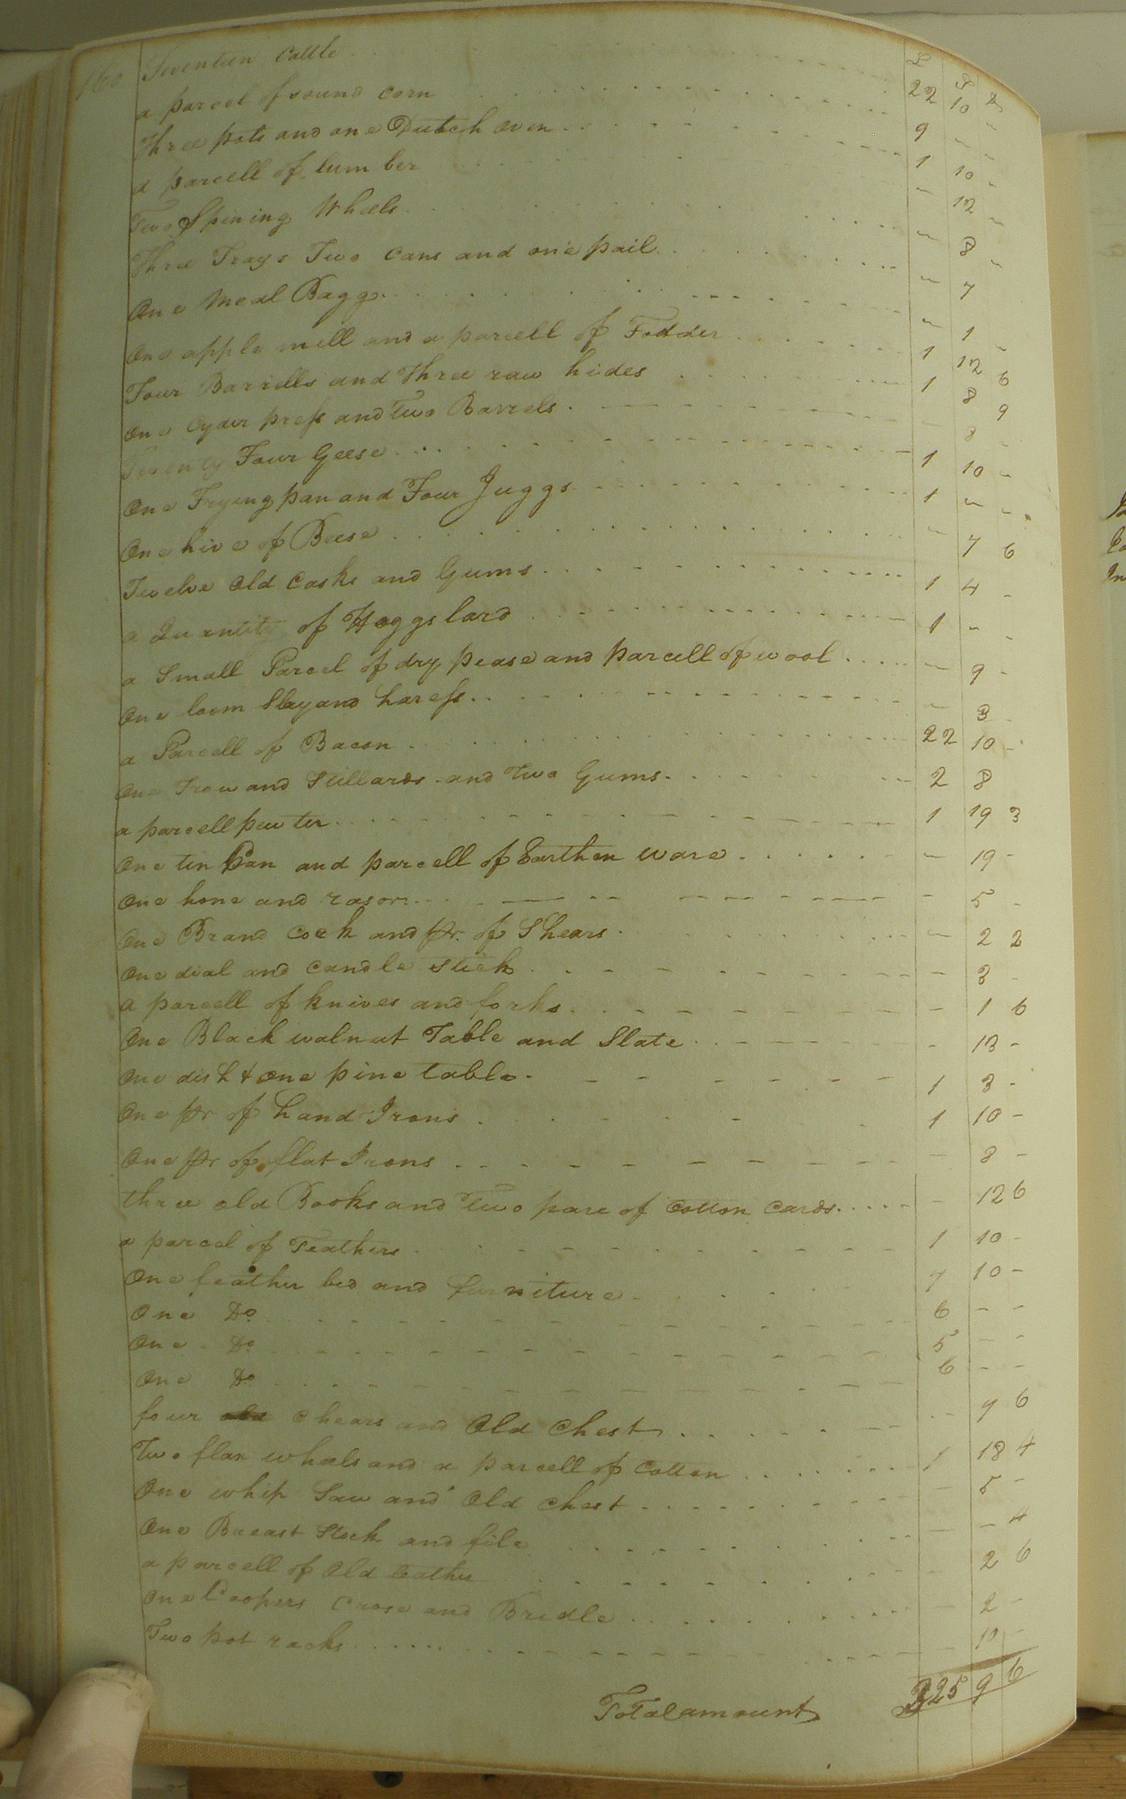 160 Seventeen Cattle £ S D 22 10 -
a parcel of sound corn 9 - -
Three pots and one Dutch oven 1 10 -
a parcell of lumber - 12 -
Two Spining Wheels - 8 -
Three Trays Two Cans and one pail - 7
One Meal Bagg - 1 -
One apple mill and a parcell of Fodder 1 12 6
Four Barrells and Three raw hides 1 8 9
One Cyder press and Two Barrels - 8 -
Twenty Four Geese 1 10 -
One Frying pan and Four Juggs 1 - -
One hive of Beese - 7 6
Twelve old Casks and Gums 1 4 -
a Quantity of Hoggs lard 1 - -
a Small Parcel of dry pease and parcell of wool - 9 -
One loom Slay and harness - 3
a Parcell of Bacon 22 10 -
One Frow and Stillards and two Gums 2 8
a parcell pewter 1 19 3
One tin Can and parcell of Earthen ware - 19 -
One hone and rasor - 5 -
One Brand Cock and pr. of Shears - 2 2
One dial and Candle Stick - 3 -
a parcell of knives and forks - 1 6
One Black walnut Table and Slate - 13 -
One dish & one pine table 1 3 -
One pr of hand Irons 1 10 -
One pr of flat Irons - 8 -
three old Books and Two pare of Cotton Cards - 12 6
a parcel of Feathers 1 10 -
One feather bed and furniture 7 10 -
One Do 6 - -
One Do 5 - -
One Do 6 - -
four chears and Old Chest - 7 6
Two flax wheels and a parcell of Cotton 1 18 4
One whip Saw and Old Chest - 5 -
One Breast Stock and file - - 4
a parcell of Old leather 2 6
One Coopers Crose and Bridle - 2 -
Two pot racks - 10 -
Total amount 325 9 6